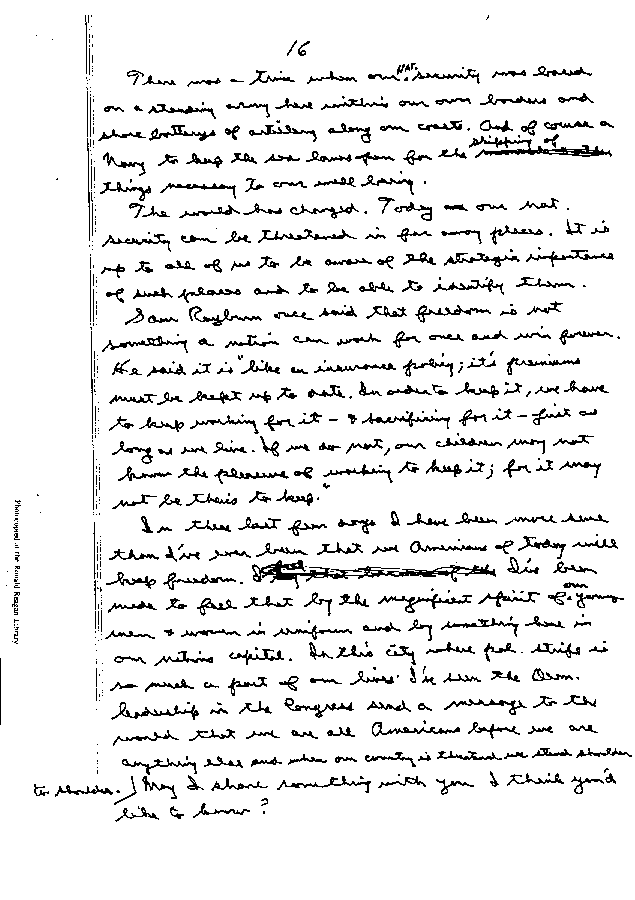 16
There was a time when our nat. security was based
on a standing army here within our own borders and
shore batterys of artillery along our coasts. And of course a
Navy to keep the sea lanes open for the shipping of
things necessary to our well being.
The world has changed. Today our nat.
security can be threatened in far away places. It is
up to all of us to be aware of the strategic importance
of such places and to be able to identify them.
Sam Rayburn once said that freedom is not
something a nation can work for once and win forever.
He said it is "like an insurance policy; it's premiums
must be kept up to date. In order to keep it, we have
to keep working for it – & sacrificing for it – just as
long as we live. If we do not, our children may not
know the pleasure of working to keep it; for it may
not be theirs to keep."
In these last few days I have been more sure
than I've ever been that we Americans of today will
keep freedom. I've been
made to feel that by the magnificent spirit of our young
men & women in uniform and by something here in
our nations capital. In this city where pol. strife is
so much a part of our lives I've seen the Dem.
leadership in the Congress send a message to the
world that we are all Americans before we are
anything else and when our country is threatened we stand shoulder
to shoulder. May I share something with you I think you'd
like to know?
Photocopied at the Ronald Reagan Library